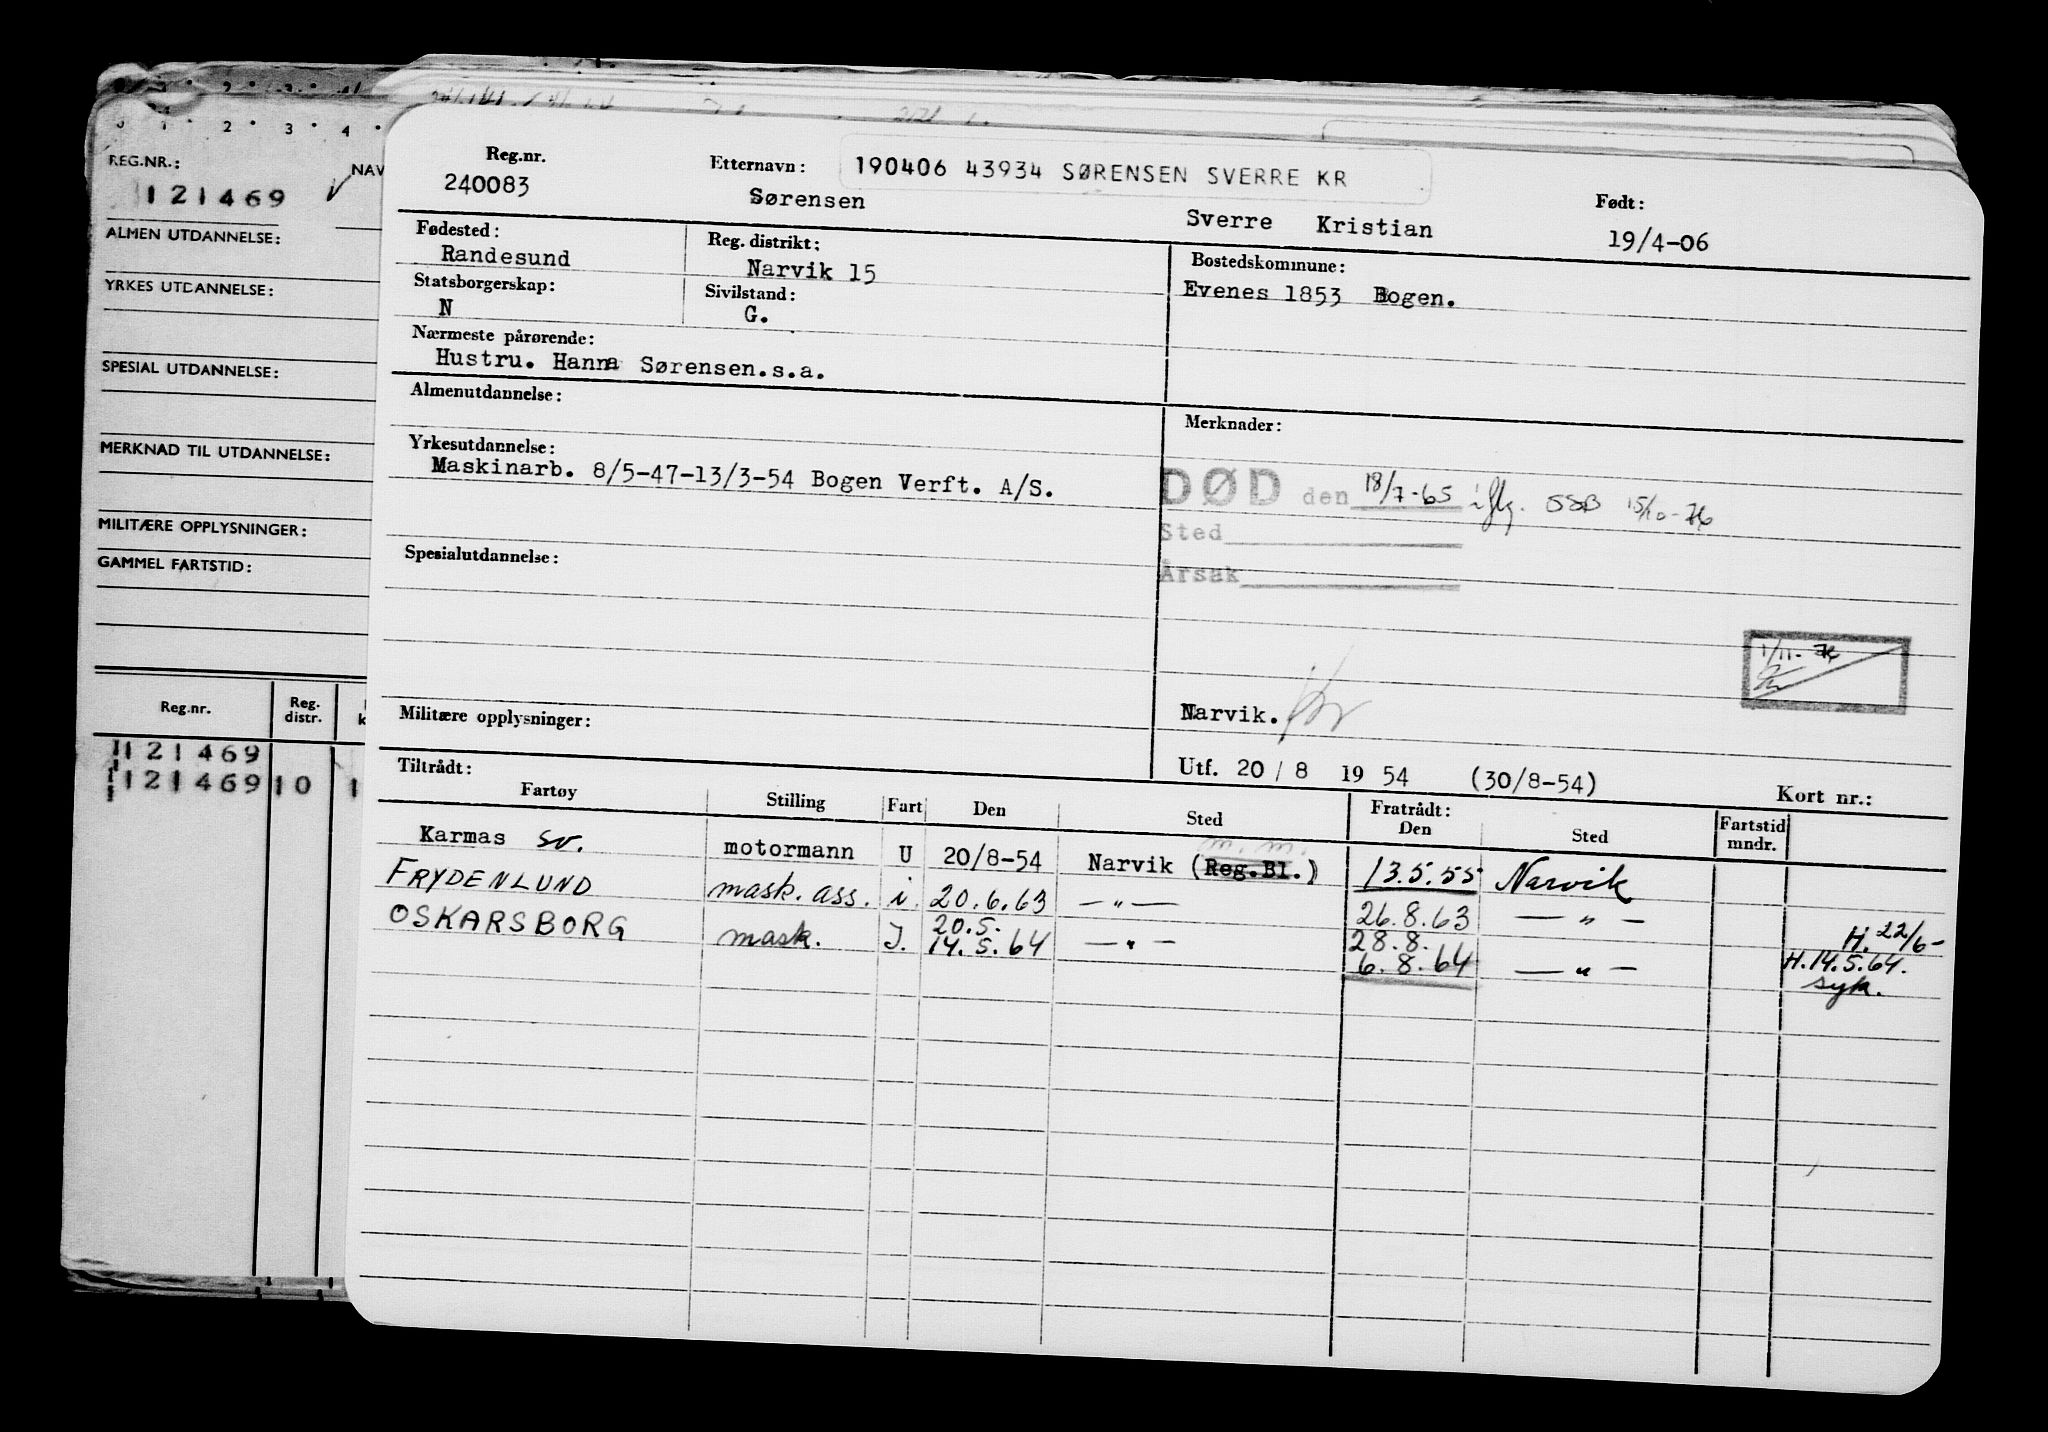 0 1 2 3 4
REG.NR.: NAV
121469
ALMEN UTDANNELSE:
YRKES UTDANNELSE:
SPESIAL UTDANNELSE:
MERKNAD TIL UTDANNELSE:
MILITÆRE OPPLYSNINGER:
GAMMEL FARTSTID:
Reg.nr. Reg. distr. k
121469
121469 10 1
Reg.nr. Etternavn: 190406 43934 SØRENSEN SVERRE KR Født:
240083 Sørensen Sverre Kristian 19/4-06
Fødested: Reg. distrikt: Bostedskommune:
Randesund Narvik 15 Evenes 1853 Bogen.
Statsborgerskap: Sivilstand:
N G.
Nærmeste pårørende:
Hustru. Hanna Sørensen.s.a.
Almenutdannelse: Merknader:
Yrkesutdannelse:
Maskinarb. 8/5-47-13/3-54 Bogen Verft. A/S.
DØD den 18/7-65 iflg. SSB 15/10-76
Sted
Årsak
Spesialutdannelse:
1/11-76
Militære opplysninger: Narvik.
Tiltrådt: Utf. 20/8 1954 (30/8-54) Kort nr.:
Fartøy Stilling Fart Den Sted Fratrådt: Den Sted Fartstid mndr.
Karmas sv. motormann U 20/8-54 Narvik (Reg.Bl.) m.m. 13.5.55 Narvik
FRYDENLUND mask. ass. i. 20.6.63 —"— 26.8.63 —"— H. 22/6-
OSKARSBORG mask. I. 20.5. 14.5.64 —"— 28.8. 6.8.64 —"— H.14.5.64.
syk.